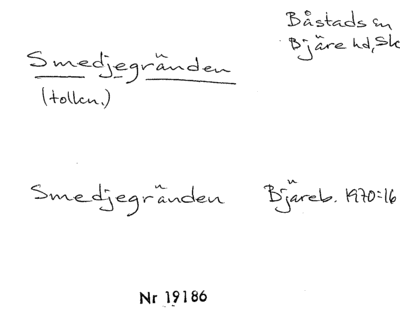 Båstads sn
Bjäre hd, Sk
Smedjegränden
(tolkn.)
Smedjegränden Bjäreb. 1970:16
Nr 19186